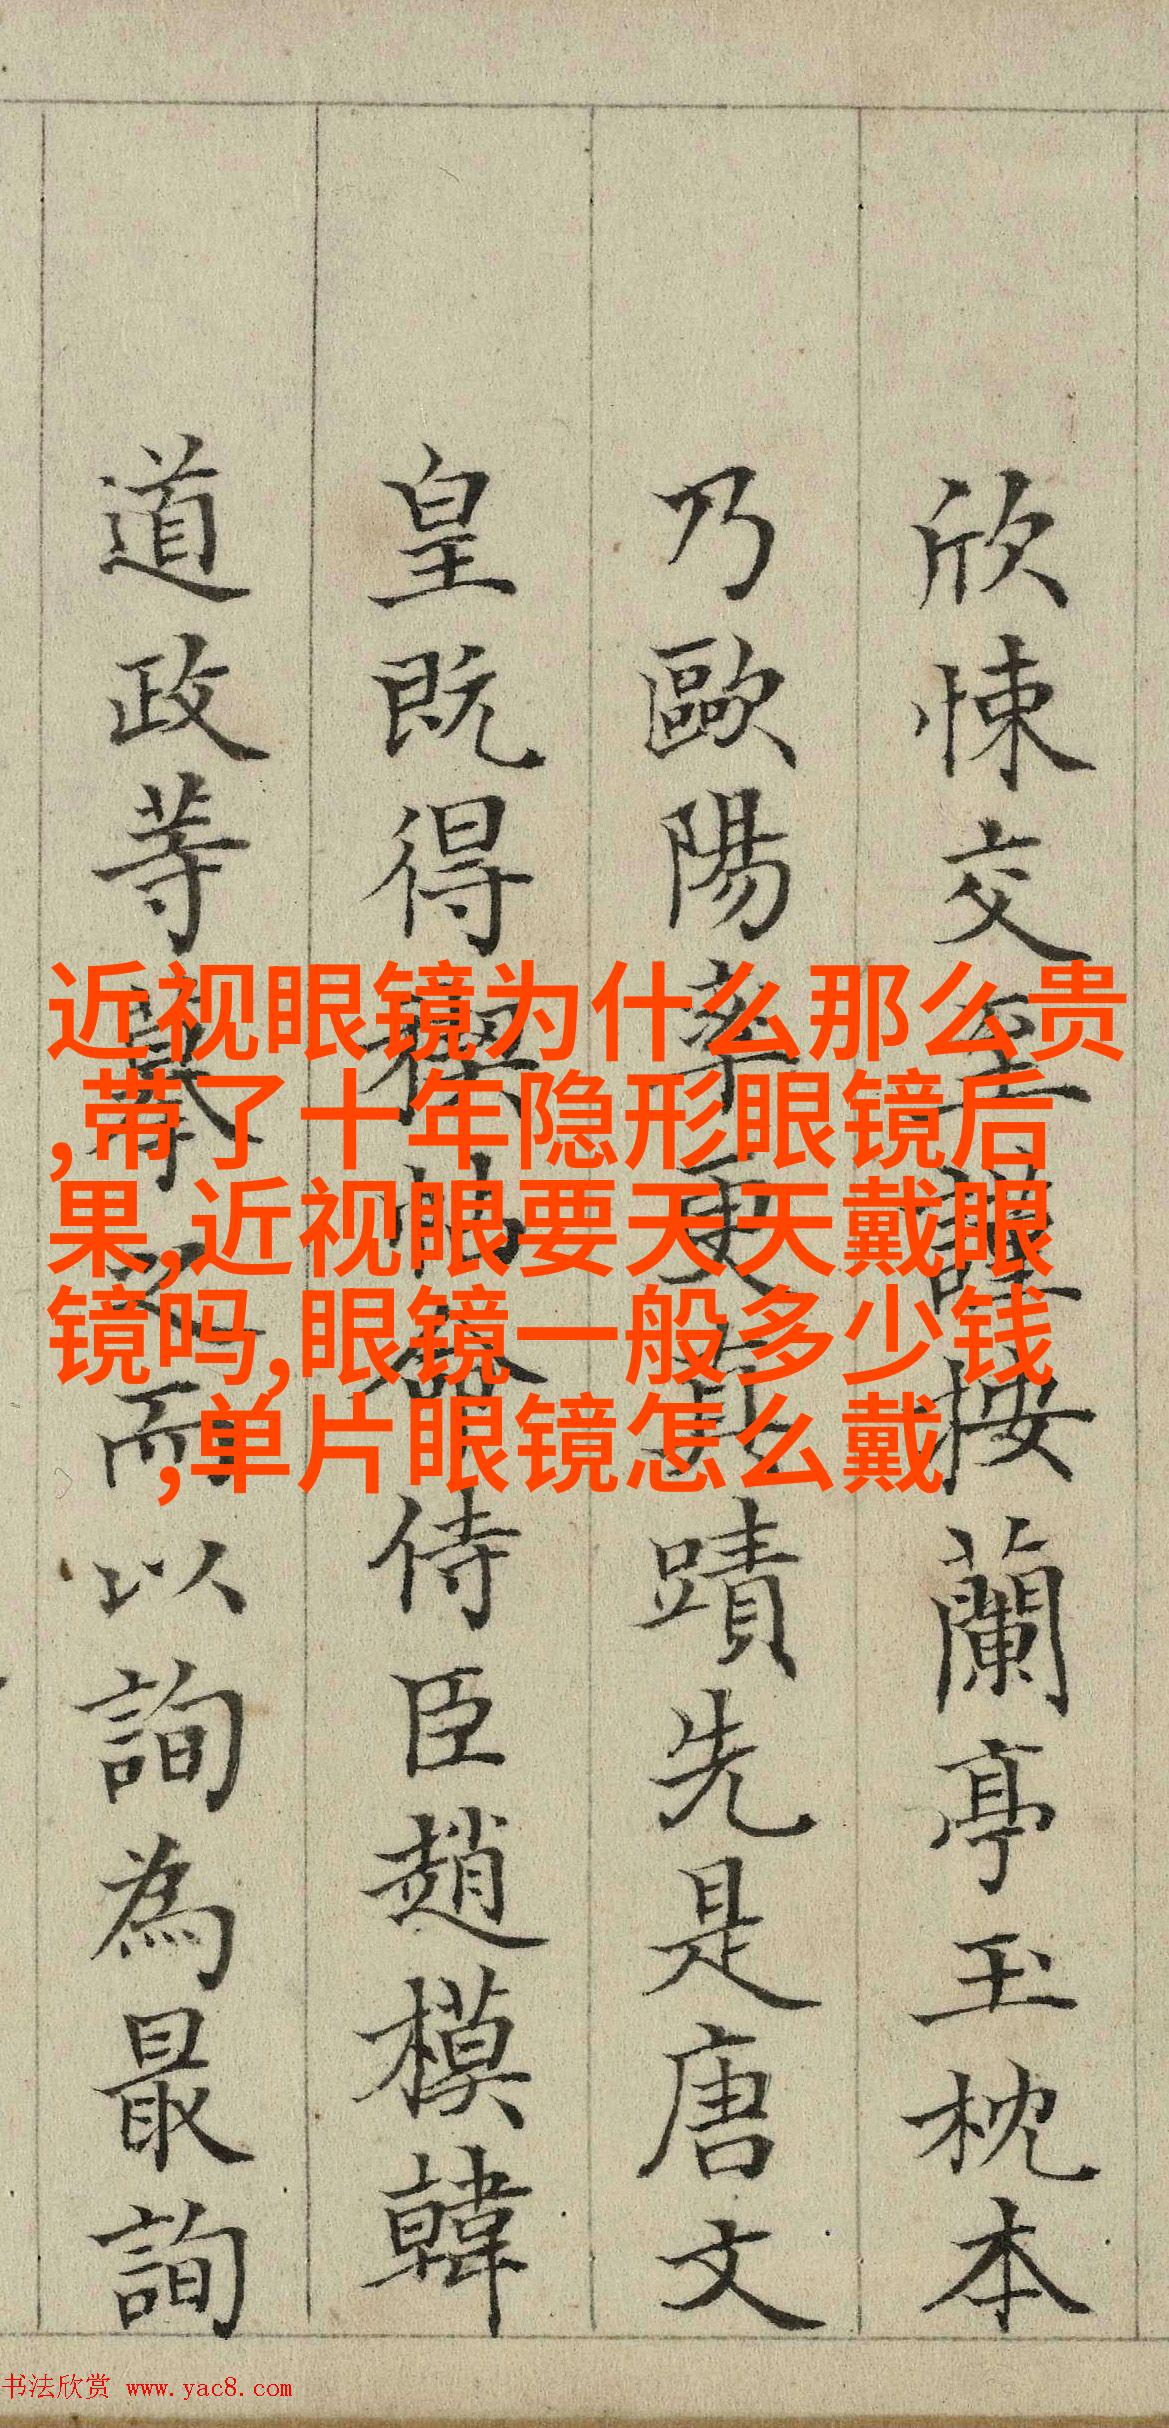 欣悚交至謹按蘭亭玉枕本
乃歐陽率更真蹟先是唐文
皇既得禊帖命侍臣趙模韓
道政等摹之而以詢為最詢
近视眼镜为什么那么贵
,带了十年隐形眼镜后
果,近视眼要天天戴眼
镜吗,眼镜一般多少钱
,单片眼镜怎么戴
书法欣赏 www.yac8.com